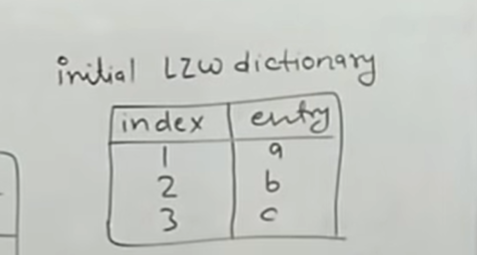 initial LZW dictionary
index entry
1 a
2 b
3 c